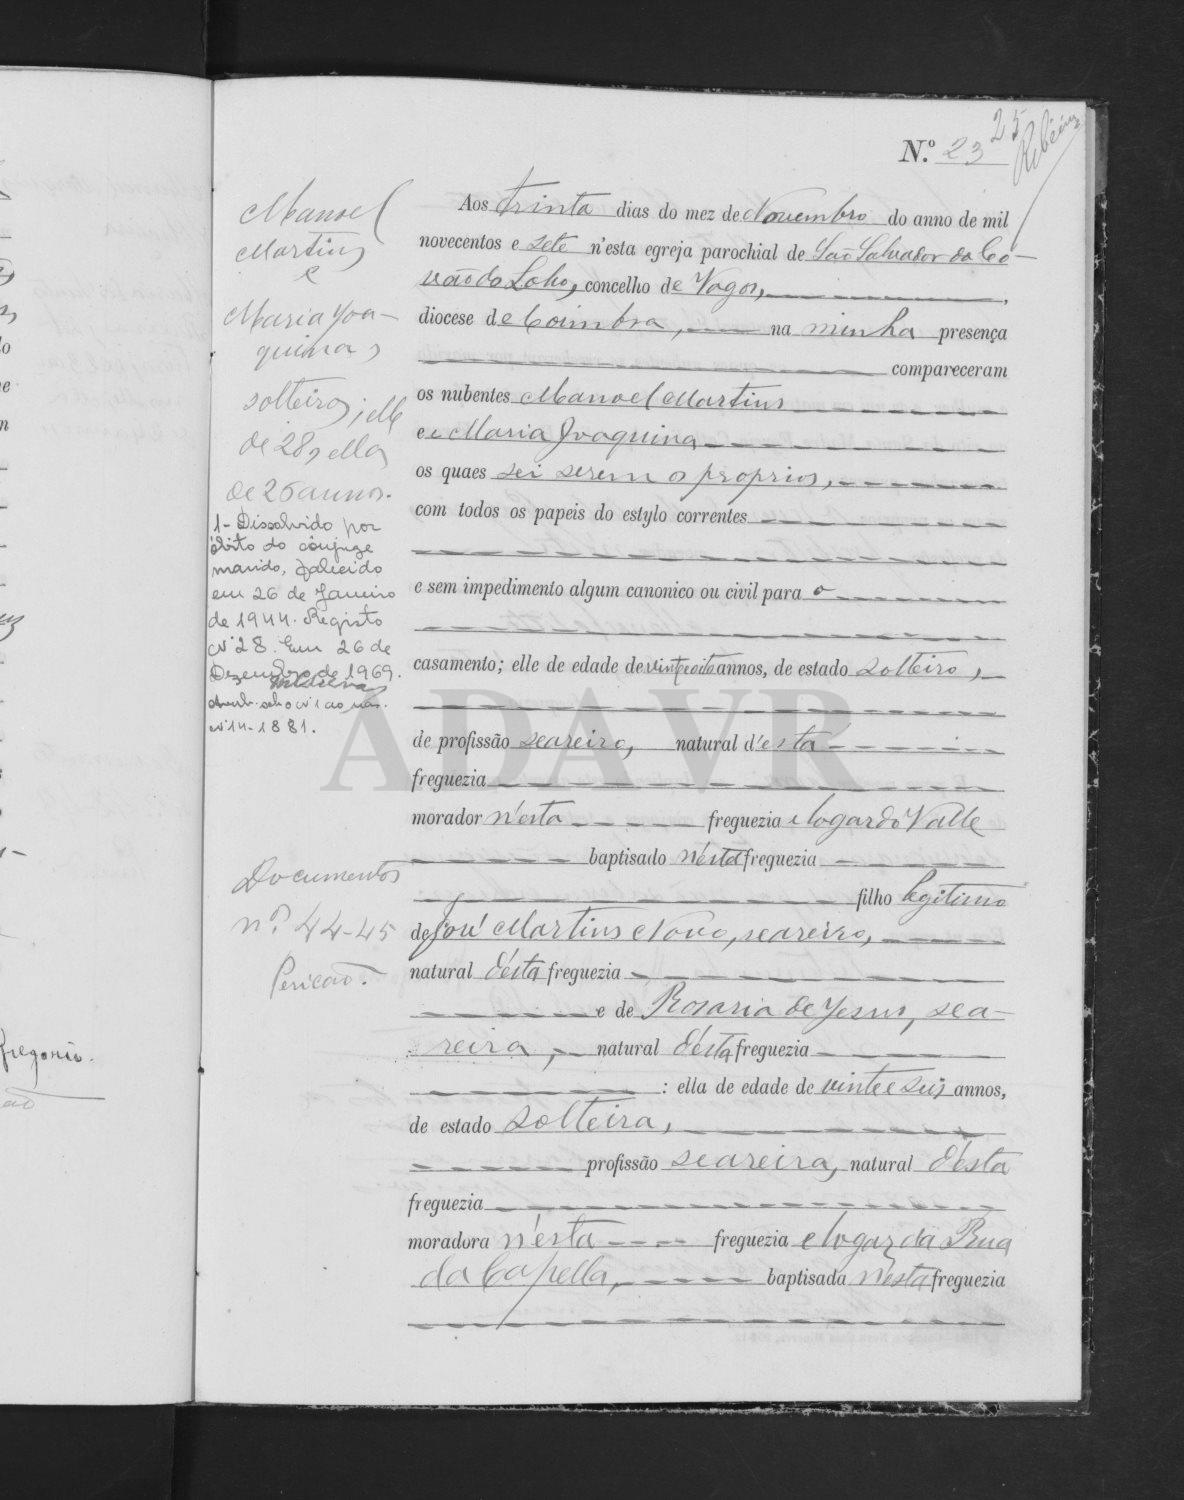 25
N.º 23
Manoel
Martins
e
Maria Joa-
quina,
solteiros; elle
de 28, ella
de 26 annos.
1- Dissolvido por
óbito do cônjuge
marido, falecido
em 26 de Janeiro
de 1944. Registo
nº 28. Em 26 de
Dezembro de 1969.
nº 14-1881.
Documentos
nos. 44-45
Aos trinta dias do mez de Novembro do anno de mil
novecentos e sete n'esta egreja parochial de São Salvador da Co-
vão do Lobo, concelho de Vagos,
diocese de Coimbra, na minha presença
compareceram
os nubentes Manoel Martins
e Maria Joaquina
os quaes sei serem os proprios,
com todos os papeis do estylo correntes
e sem impedimento algum canonico ou civil para o
casamento; elle de edade de vinte e oito annos, de estado solteiro,
de profissão seareiro, natural d'esta
freguezia
morador n'esta freguezia e logar do Valle
baptisado n'esta freguezia
filho legitimo
de José Martins Novo, seareiro,
natural d'esta freguezia
e de Rosaria de Jesus, sea-
reira, natural d'esta freguezia
: ella de edade de vinte e seis annos,
de estado solteira,
profissão seareira, natural d'esta
freguezia
moradora n'esta freguezia e logar da Rua
da Capella, baptisada n'esta freguezia
ADAVR
Gregorio.